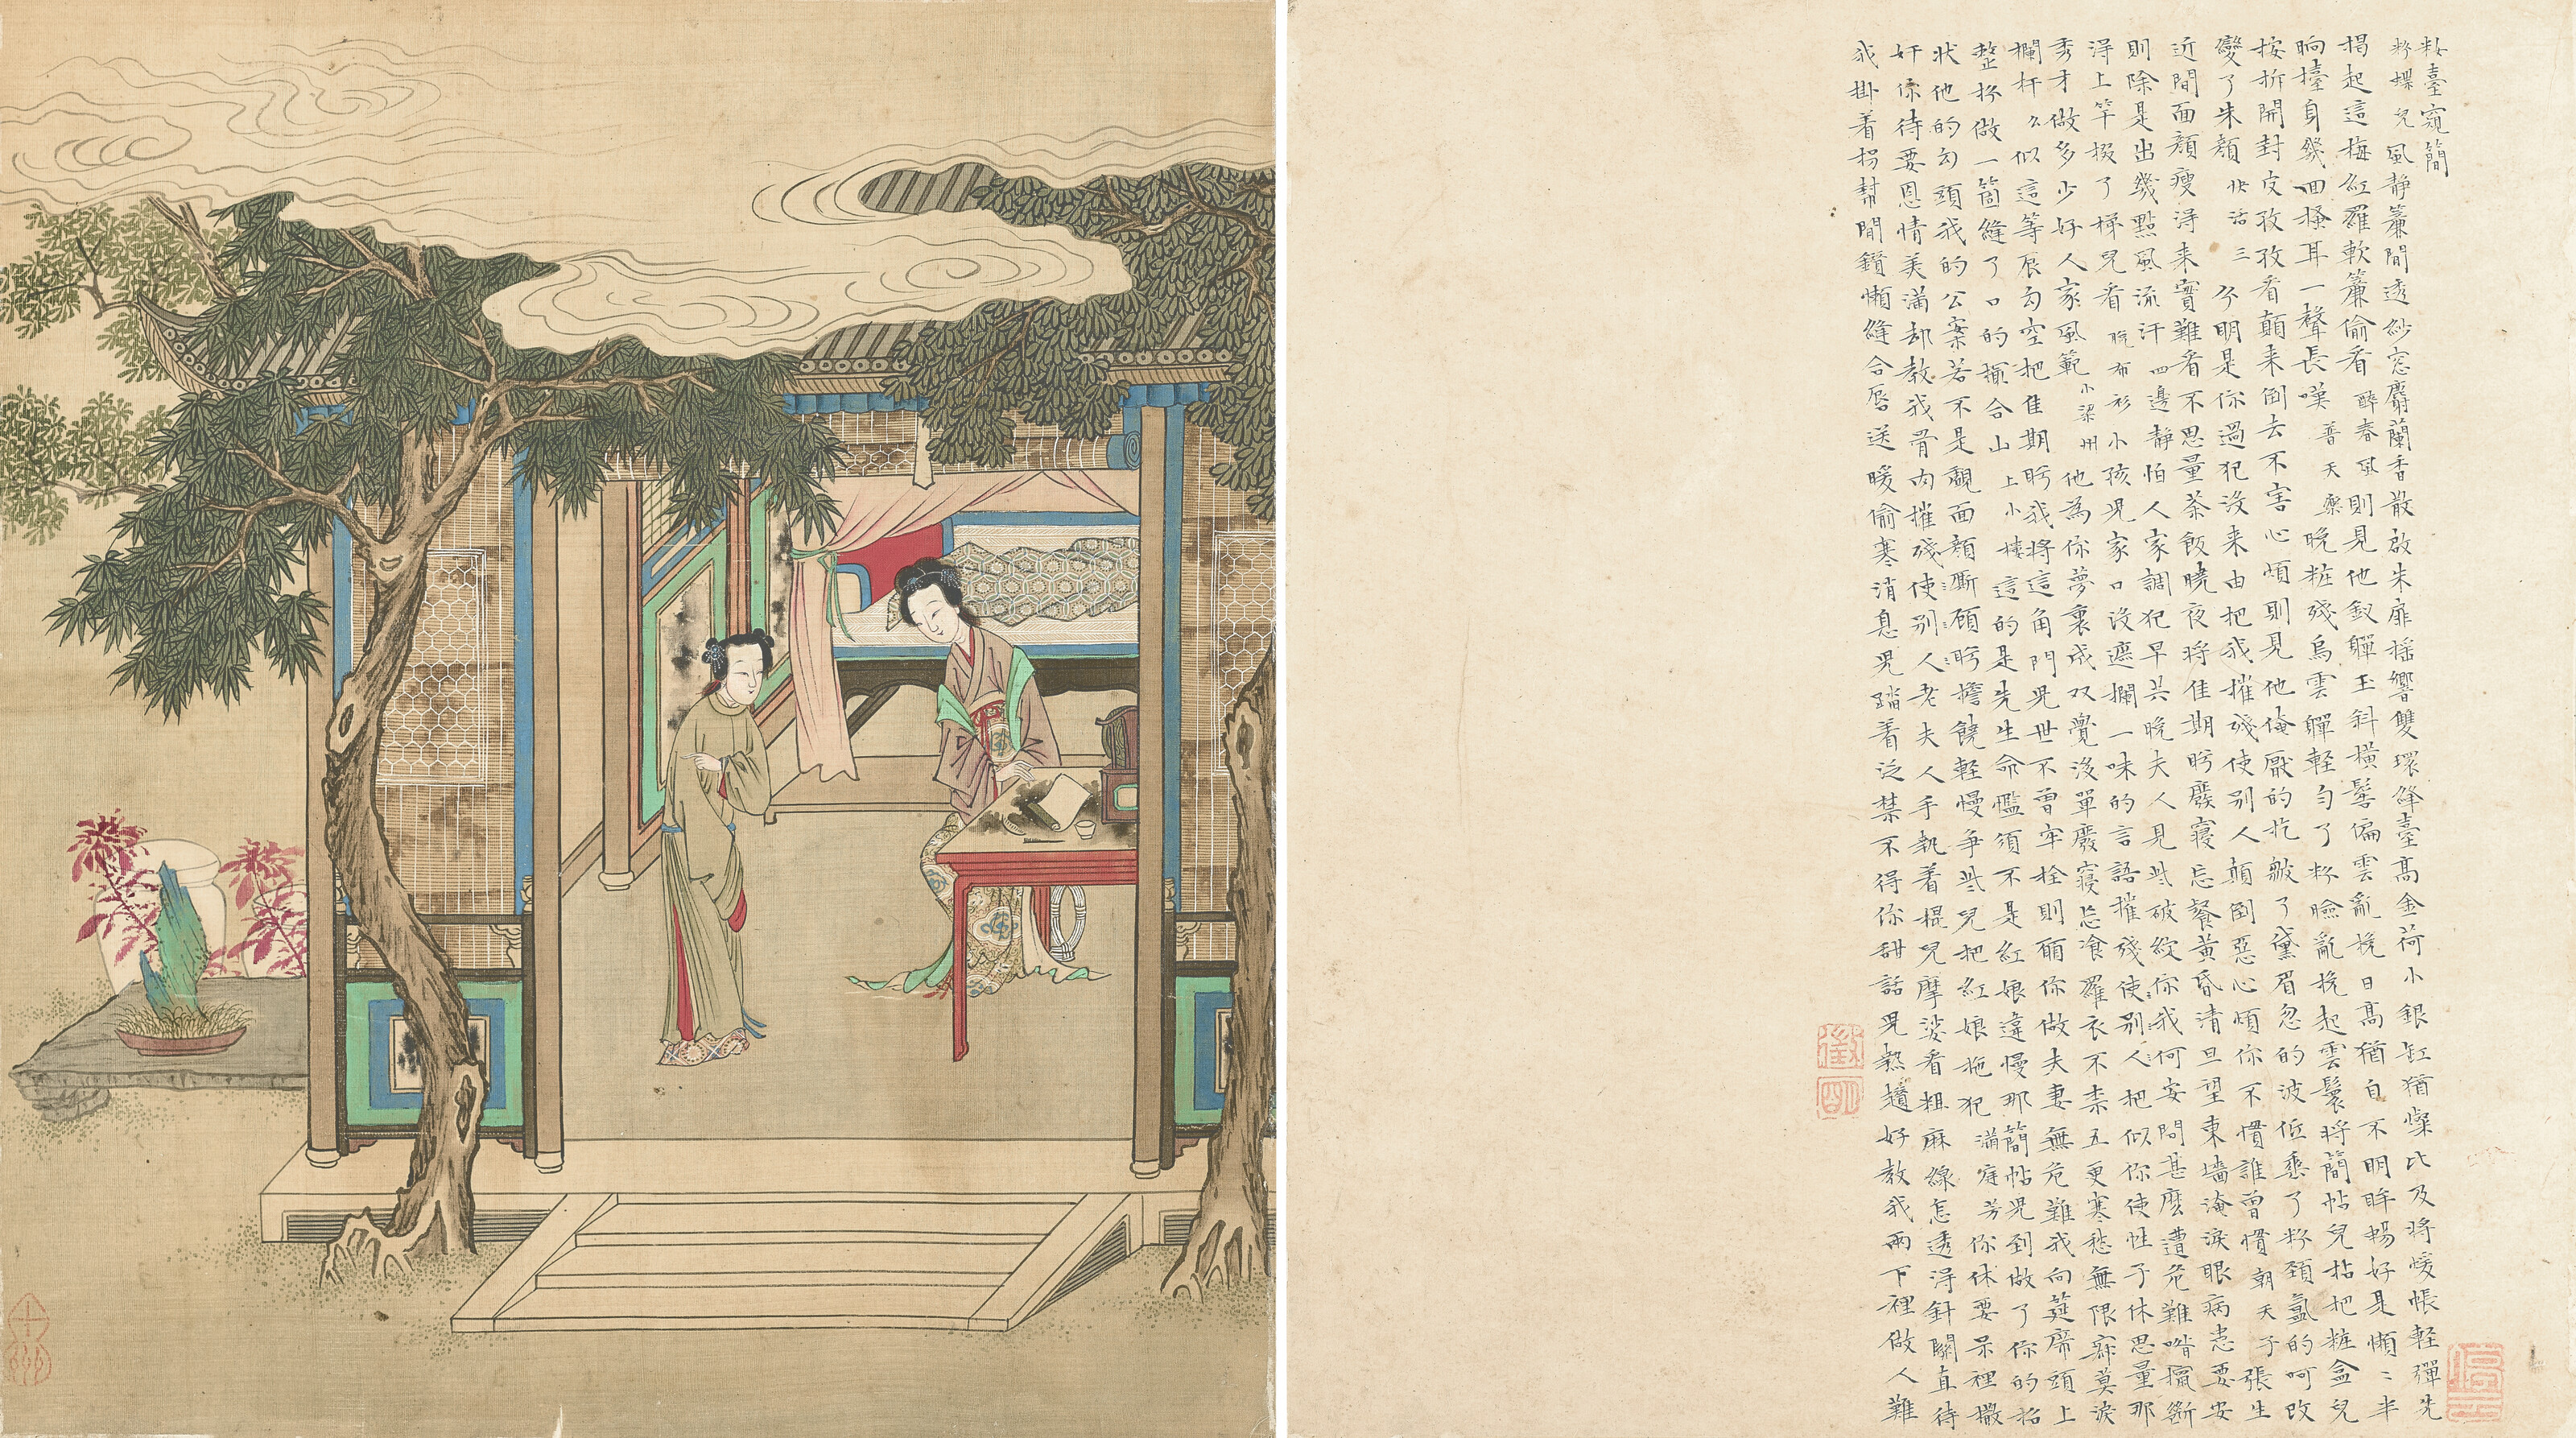 妝臺窺簡
粉蝶兒風靜簾間透紗窓麝蘭香散啟朱扉搖響雙環絳臺高金荷小銀缸猶燦比及將煖帳軽彈先
揭起這梅紅羅軟簾偷看醉春風則見他釵軃玉斜橫髻偏雲亂挽日高猶自不明眸暢好是懶〻半
晌擡身幾回搔耳一聲長嘆普天樂晚粧殘烏雲軃軽勻了粉臉亂挽起雲鬟將簡帖兒拈把粧盒兒
按拆開封皮孜孜看顛来倒去不害心煩則見他俺厭的扢皺了黛眉忽的波低垂了粉頸氳的呵改
變了朱顔快活三分明是你過犯没来由把我摧殘使別人顛倒惡心煩你不慣誰曾慣朝天子張生
近間面顔瘦得来實難看不思量茶飯曉夜將佳期盻廢寢忘餐黃昏清旦望東墻淹淚眼病患要安
則除是出幾點風流汗四邊靜怕人家調犯早共晚夫人見些破綻你我何安問甚麽遭危難啃攛斷
得上竿掇了梯兒看脫布衫小孩兒家口没遮攔一味的言語摧殘使別人把似你使性子休思量那
秀才做多少好人家風範小梁州他為你夢裏成双覺後單廢寢忘飡羅衣不柰五更寒愁無限寂寞淚
欄杆么似這等辰勾空把佳期盻我將這角門兒世不曾牢拴則願你做夫妻無危難我向莚席頭上
整扮做一箇縫了口的撮合山上小樓這的是先生命慳須不是紅娘違慢那簡帖兒到做了你的招
狀他的勾頭我的公案若不是覷面顔厮顧盻擔饒軽慢爭些兒把紅娘拖犯滿庭芳你休要呆裡撒
奸你待要恩情美滿却教我骨肉摧殘使別人老夫人手執着棍兒摩娑看粗麻線怎透得針關直待
我掛着拐幫閒鑽懶縫合唇送暖偷寒消息兒踏着泛禁不得你甜話兒熱趲好教我兩下裡做人難
徵明
停雲
十洲